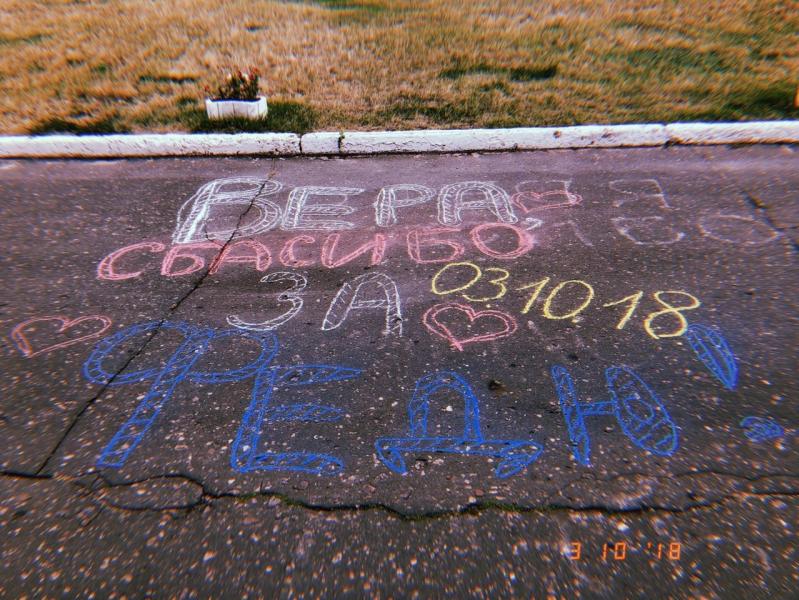 ВЕРА,
СБАСИБО
ЗА 03.10.18
ФЕДЮ!
3 10 '18